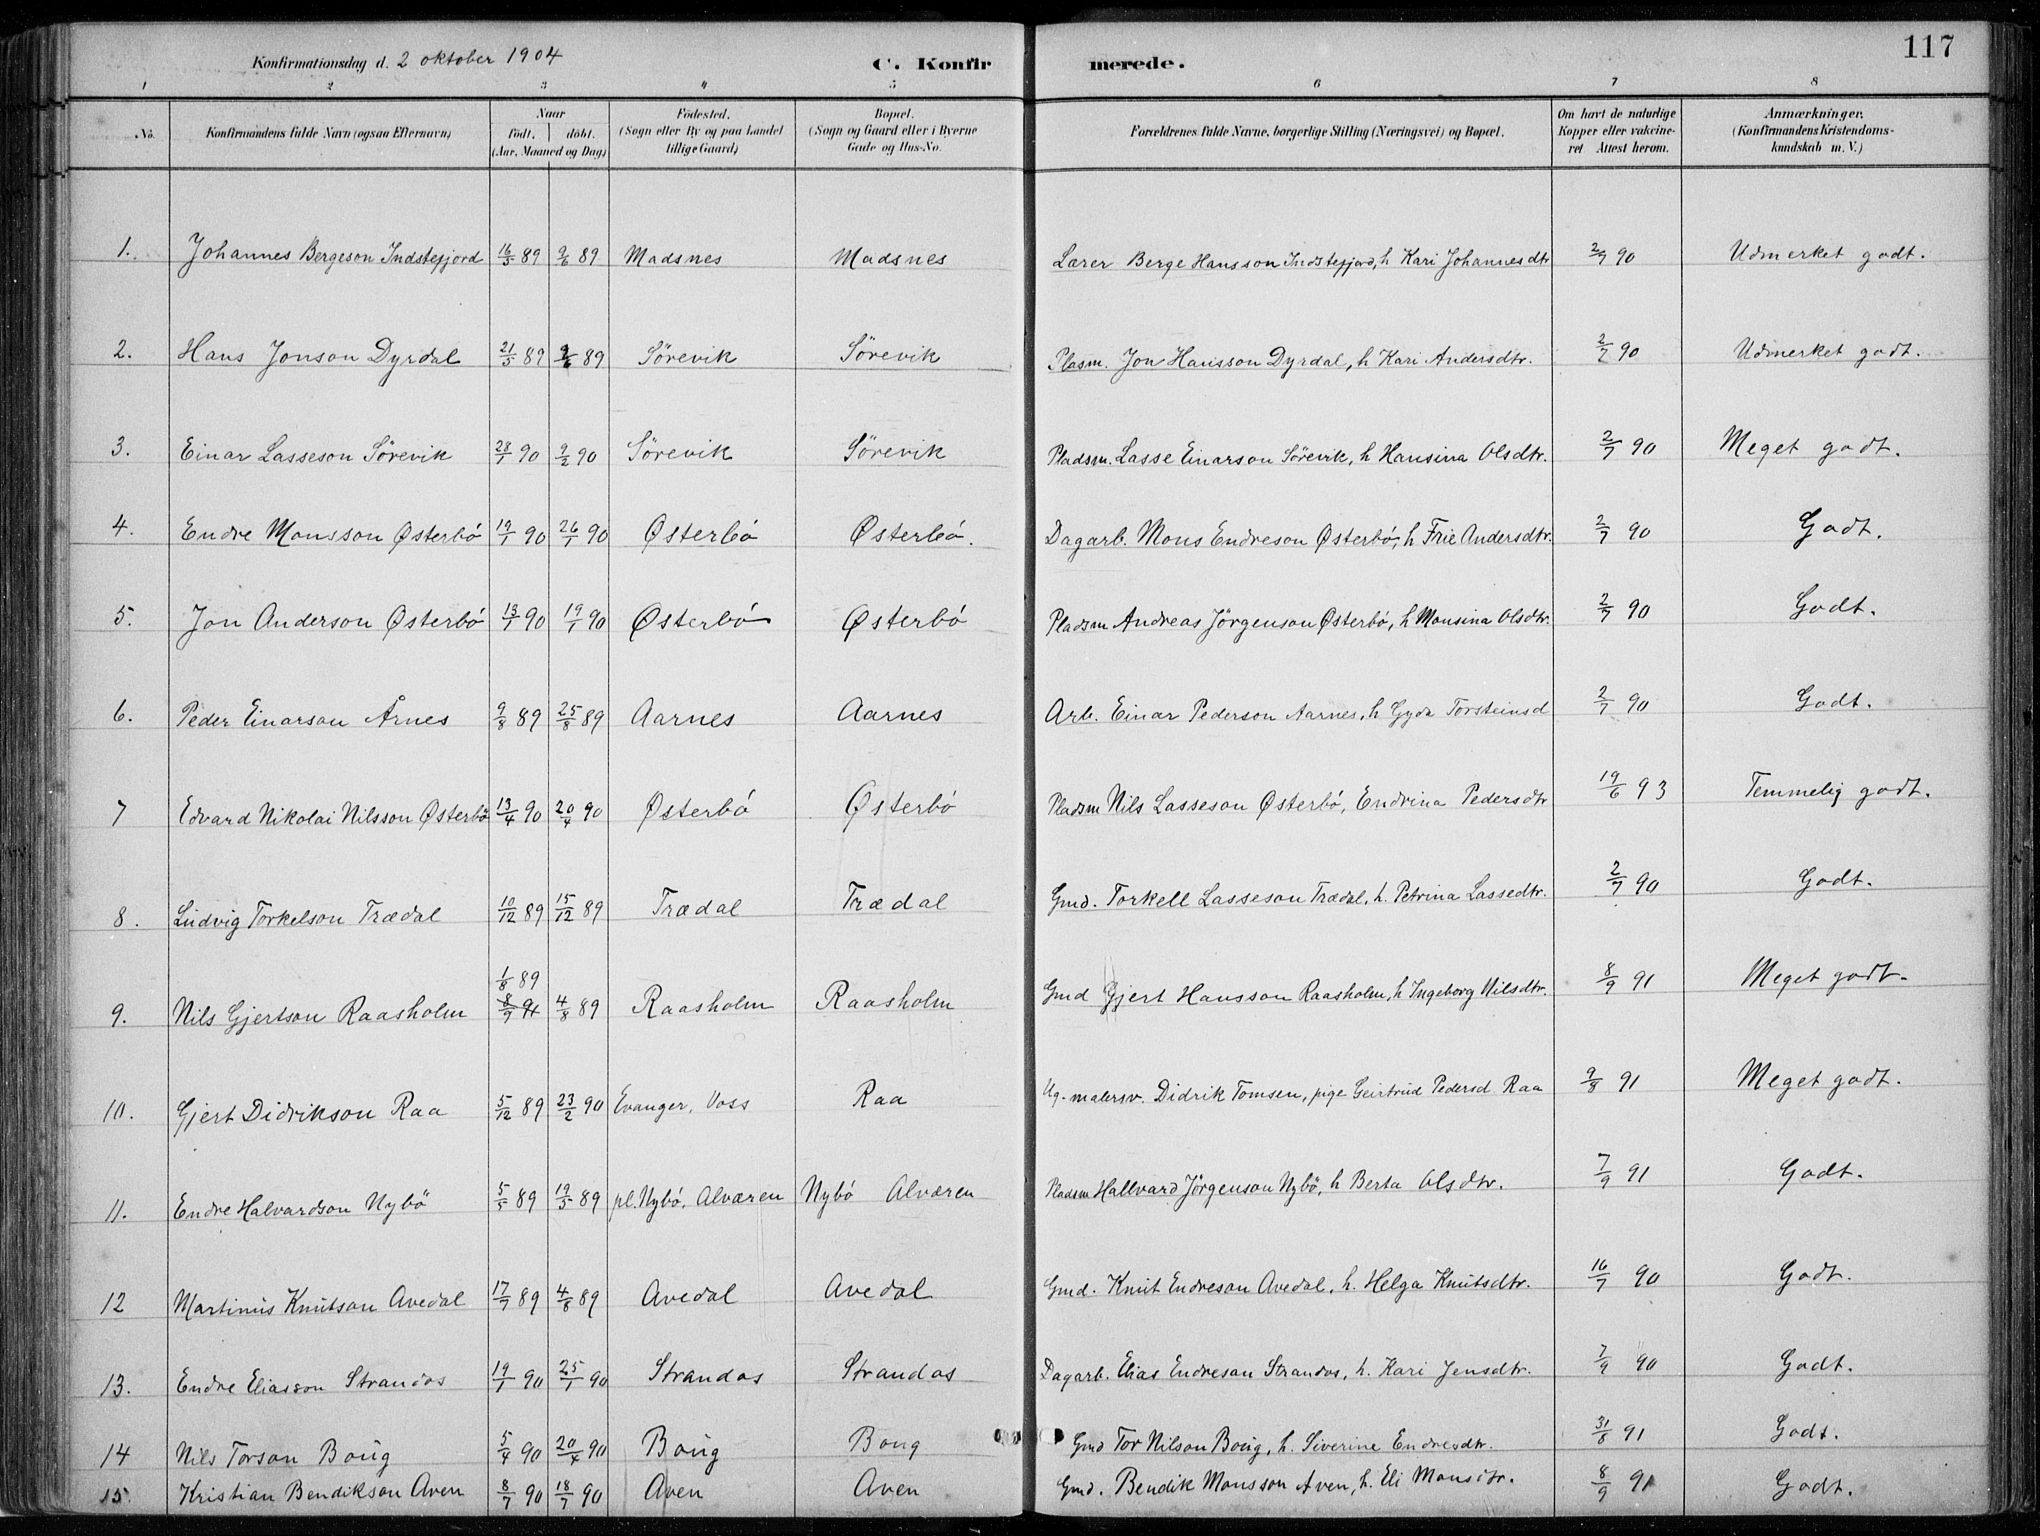 117
Konfirmationsdag d. 2 oktober 1904 C. Konfir merede.
1 2 3 4 5 6 7 8
No. Konfirmandens fulde Navn (ogsaa Efternavn) Naar født. døbt. (Aar, Maaned og Dag) Fødested. (Sogn eller By og paa Landet tillige Gaard) Bopæl. (Sogn og Gaard eller i Byerne Gade og Hus-No. Forældrenes fulde Navne, borgerlige Stilling (Næringsvei) og Bopæl. Om havt de naturlige Kopper eller vakcineret Attest herom. Anmærkninger. (Konfirmandens Kristendomskundskab m. V.)
1. Johannes Bergeson Indstefjord 16/5 89 9/6 89 Madsnes Madsnes Lærer Berge Hansson Indstefjord, h Kari Johannesdtr 2/7 90 Udmerket godt.
2. Hans Jonson Dyrdal 21/5 89 9/6 89 Sörevik Sörevik Plasm. Jon Hansson Dyrdal, h Kari Andersdtr. 2/7 90 Udmerket godt.
3. Einar Lasseson Sörevik 28/1 90 9/2 90 Sörevik Sörevik Pladsm. Lasse Einarson Sörevik, h Hansina Olsdtr. 2/7 90 Meget godt.
4. Endre Monsson Østerbó 19/1 90 26/1 90 Østerbó Østerbó. Dagarb. Mons Endreson Østerbó, h Frie Andersdtr. 2/7 90 Godt.
5. Jon Anderson Østerbó 13/1 90 19/1 90 Østerbó Østerbó Pladsm Andreas Jörgenson Østerbó, h Monsina Olsdtr. 2/7 90 Godt.
6. Peder Einarson Årnes 9/8 89 25/8 89 Aarnes Aarnes Arb. Einar Pederson Aarnes, h Gyda Torsteinsd 2/7 90 Godt.
7 Edvard Nikolai Nilsson Østerbö 13/4 90 20/4 90 Østerbó Østerbó Pladsm Nils Lasseson Østerbó, Endrina Pedersdtr 19/6 93 Temmelig godt.
8. Ludvig Torkelson Trædal 10/12 89 15/12 89 Trædal Trædal Gmd. Torkell Lasseson Trædal, h. Petrina Lassedtr. 2/7 90 Godt.
1/8 89
9. Nils Gjertson Raasholm 8/9 91 4/8 89 Raasholm Raasholm Gmd Gjert Hansson Raasholm, h Ingeborg Nilsdtr. 8/9 91 Meget godt.
10. Gjert Didrikson Raa 5/12 89 23/2 90 Evanger, Voss Raa Ug. malersv. Didrik Tomsen, pige Geirtrud Pedersd Raa 9/8 91 Meget godt.
11. Endre Halvardson Nybö 5/5 89 19/5 89 pl. Nybó, Alværen Nybó Alværen Pladsm Hallvard Jörgenson Nybö, h Berta Olsdtr. 7/9 91 Godt.
12 Martinus Knutson Avedal 17/7 89 4/8 89 Avedal Avedal Gmd. Knut Endreson Avedal, h. Helga Knutsdtr. 16/7 90 Godt.
13. Endre Eliasson Strandos 19/1 90 25/1 90 Strandos Strandos Dagarb. Elias Endreson Strandos, h. Kari Jensdtr. 7/9 90 Godt.
14 Nils Torson Boug 5/4 90 20/4 90 Boug Boug Gmd Tor Nilson Boug, h. Siverine Endresdtr. 31/8 91 Godt.
15. Kristian Bendikson Aven 8/7 90 18/7 90 Aven Aven Gmd. Bendik Monsson Aven, h. Eli Monsdtr. 8/9 91 Godt.